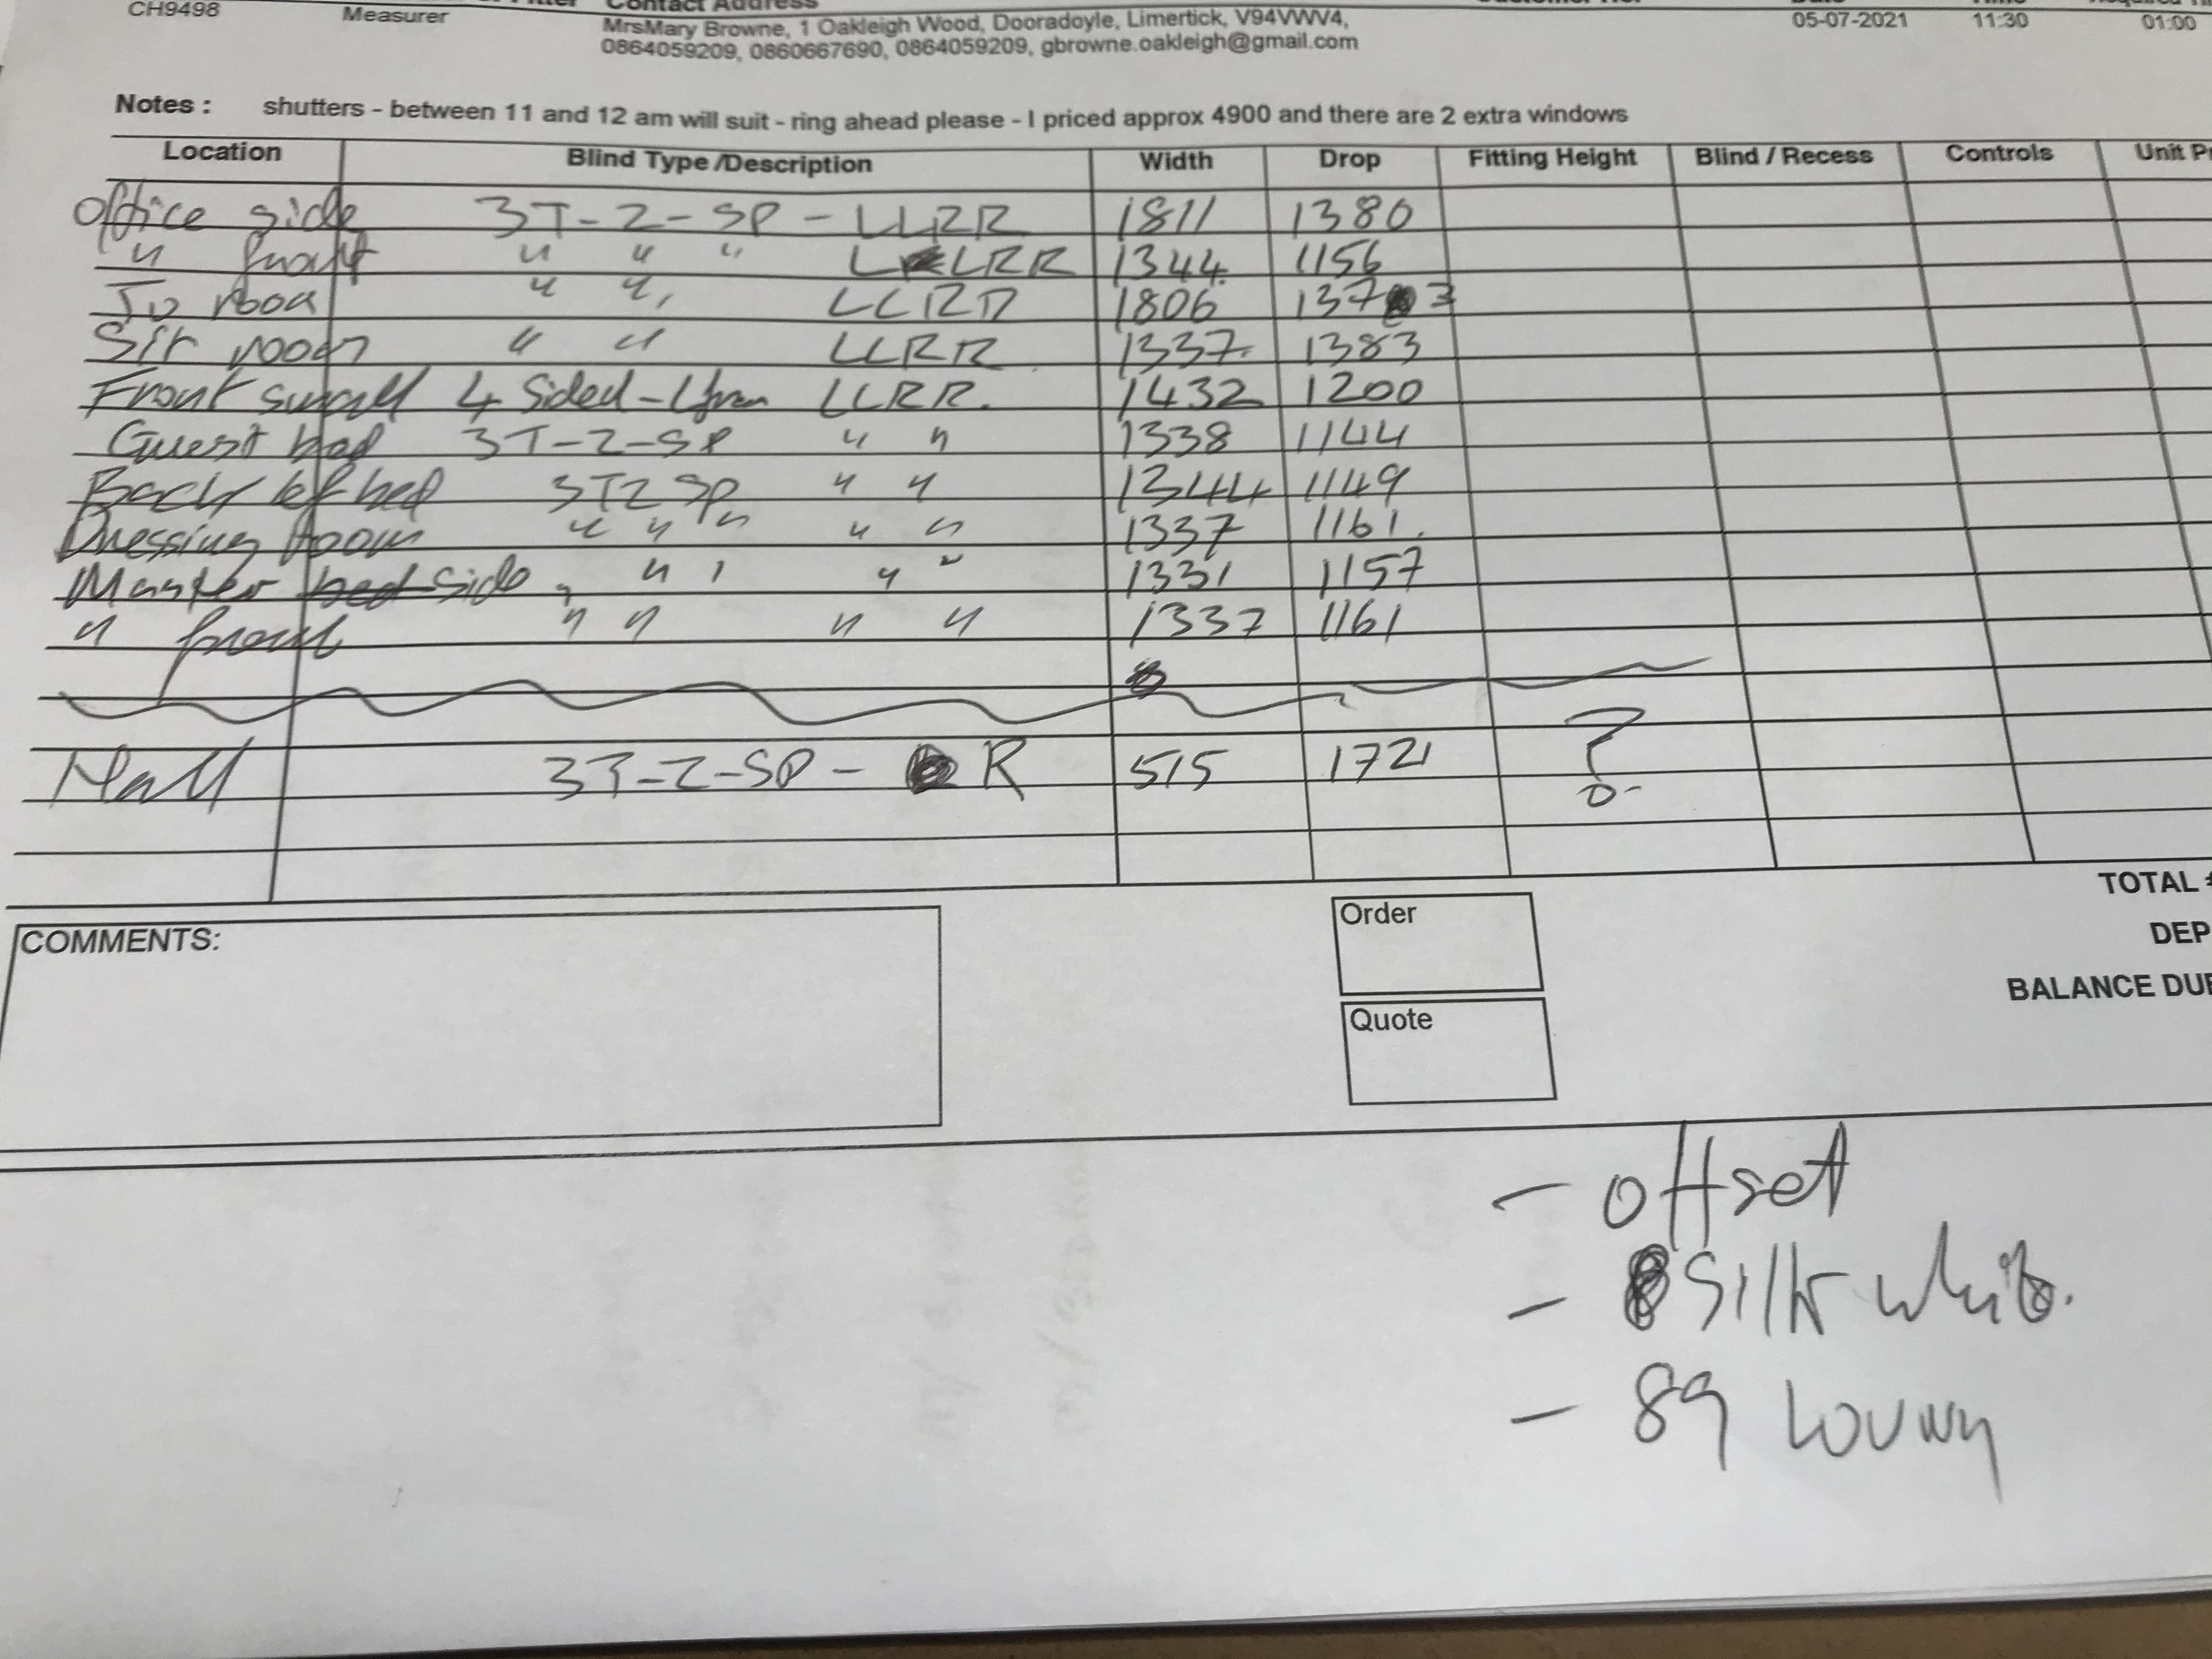 CH9498 Measurer Contact Address 05-07-2021 11:30 01:00
MrsMary Browne, 1 Oakleigh Wood, Dooradoyle, Limertick, V94VWV4,
0864059209, 0860667690, 0864059209, gbrowne.oakleigh@gmail.com
Notes : shutters - between 11 and 12 am will suit - ring ahead please - I priced approx 4900 and there are 2 extra windows
Location Blind Type /Description Width Drop Fitting Height Blind / Recess Controls Unit
Office side 3T-2-SP - LLRR 1811 1380
" front " " " LLRR 1344 1156
Tv room " " LLRR 1806 1373
Sit room " " LLRR 1337 1383
Front small 4 Sided - LLRR. 1432 1200
Guest bed 3T-2-SP " " 1338 1144
Back left bed 3T2 SP " " 1344 1149
Dressing room " " " " " 1337 1161.
Master side " " " " " 1331 1157
" front " " " " 1337 1161
Hall 3T-2-SP - R 515 1721 ?
TOTAL
COMMENTS:
Order
DEP
BALANCE DUE
Quote
- offset
- silk white.
- 89